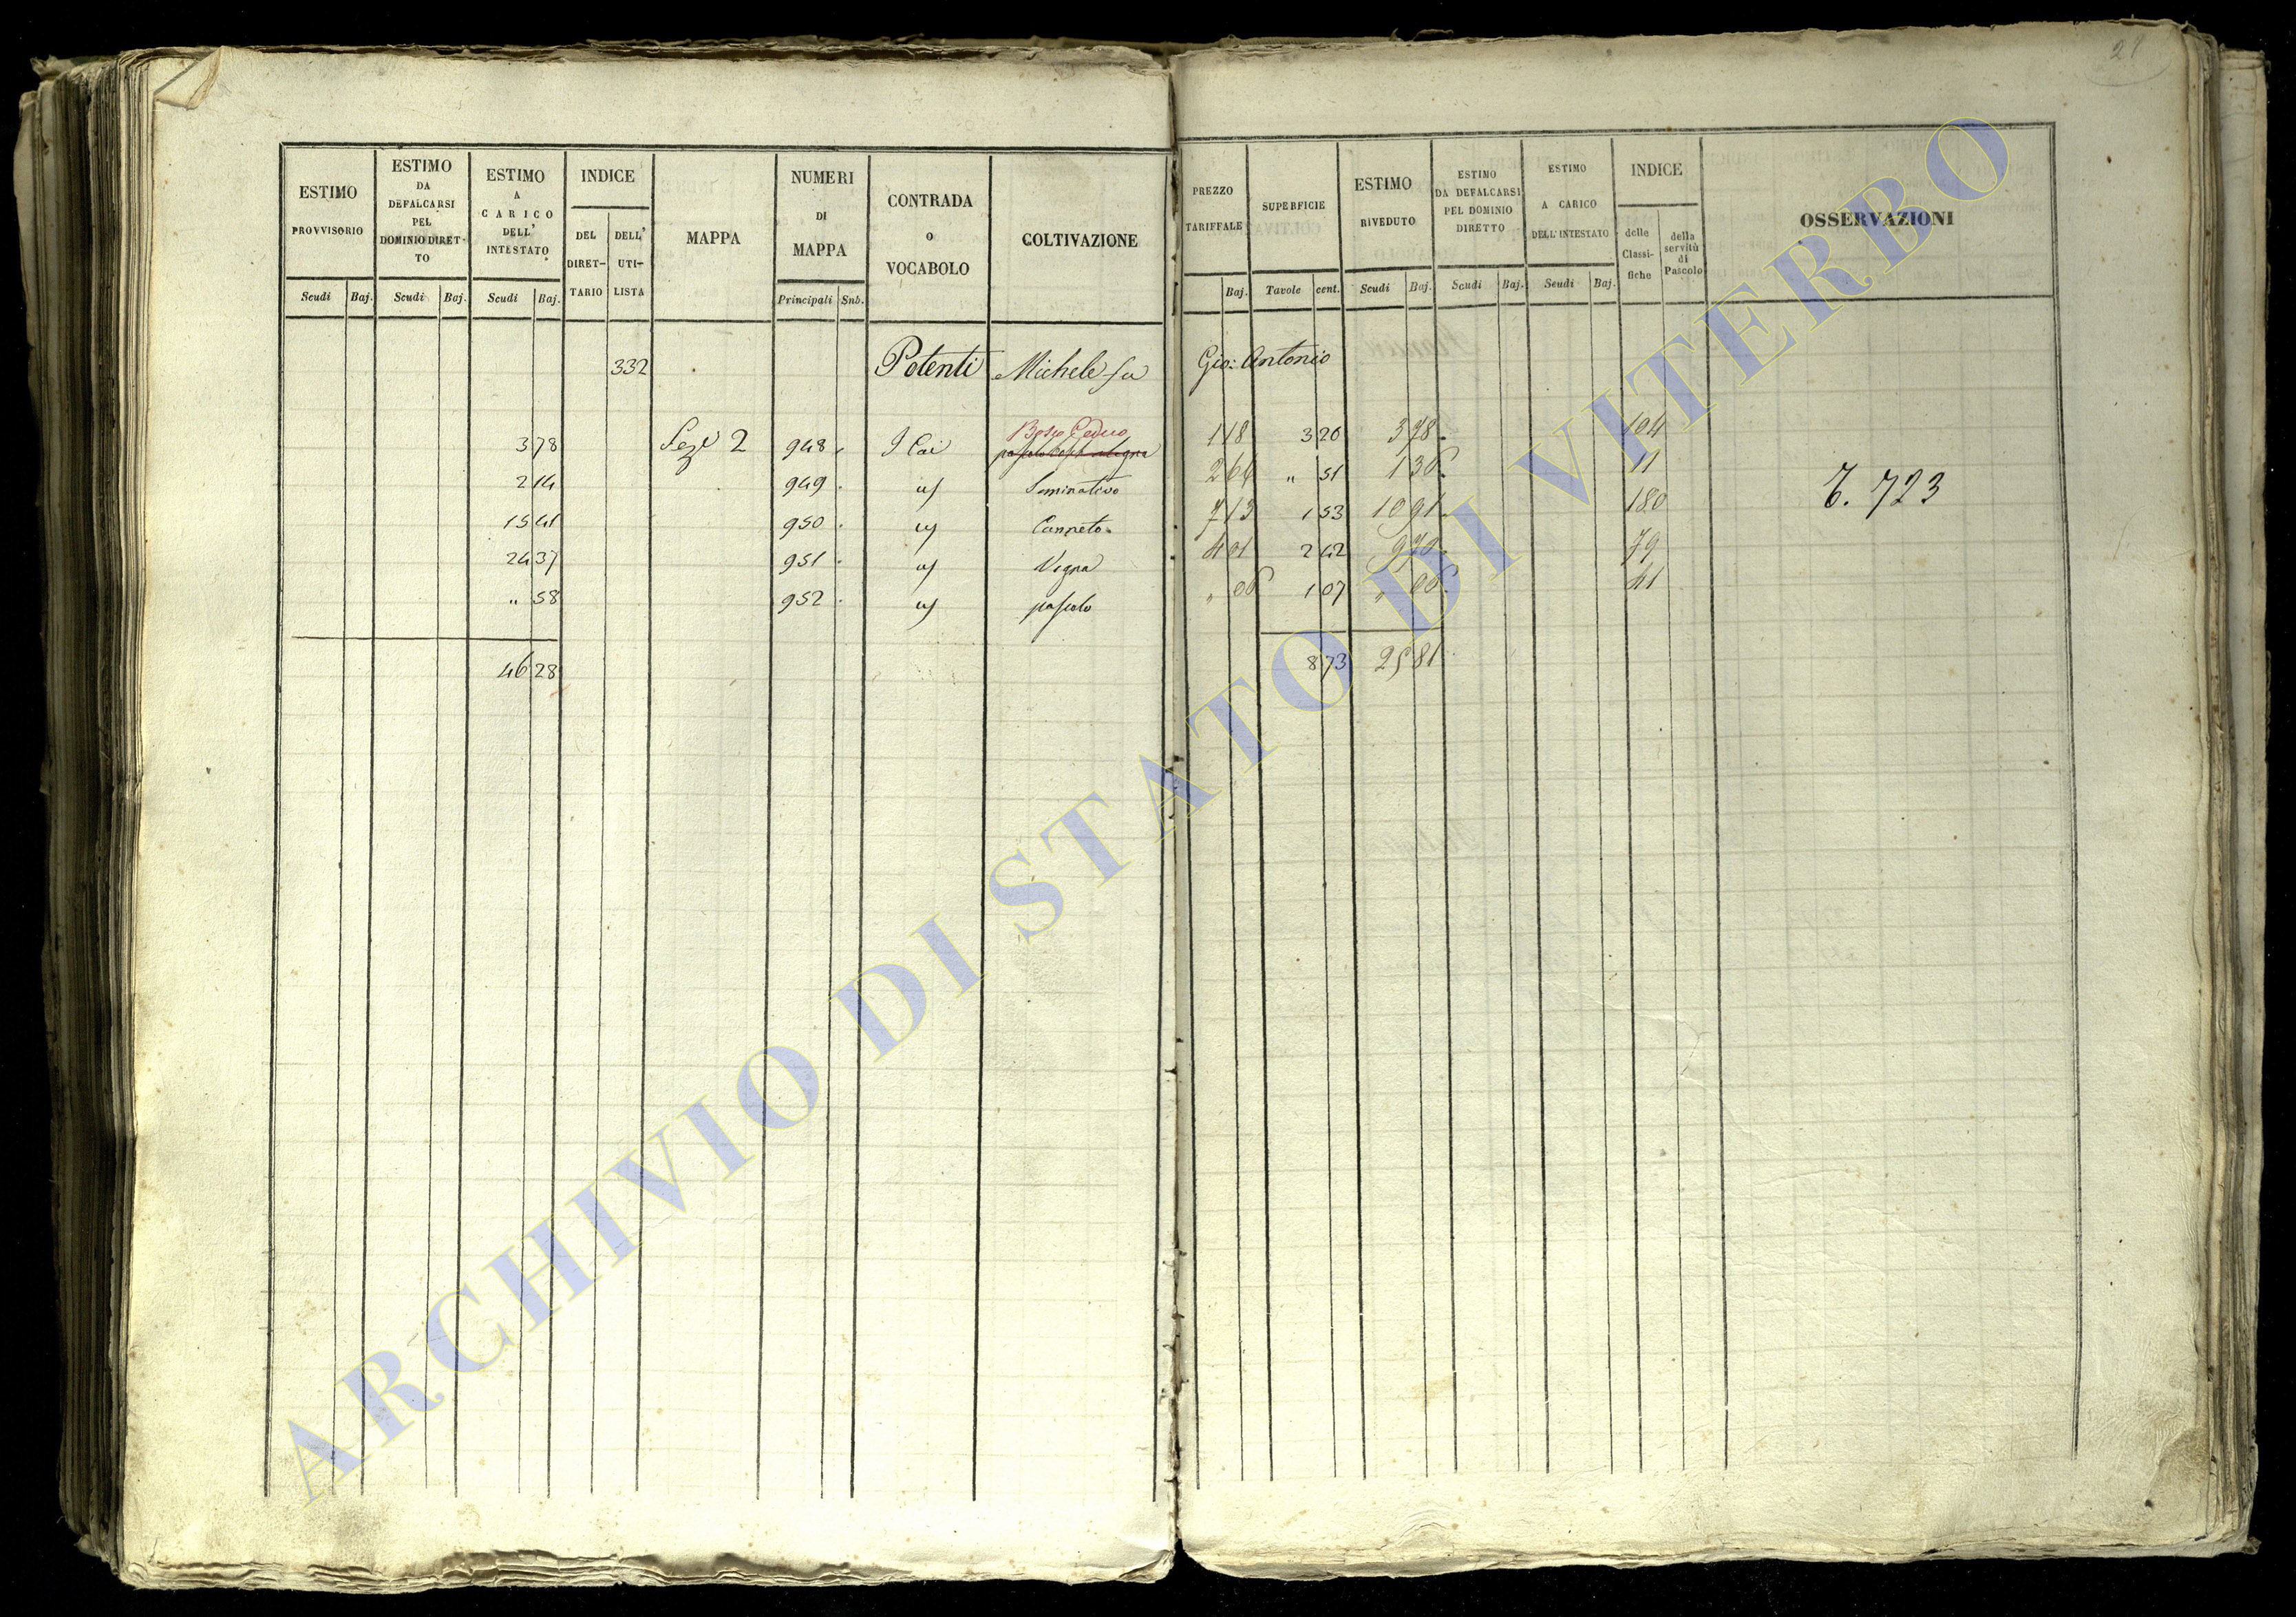 21
ESTIMO PROVVISORIO
ESTIMO DA DEFALCARSI PEL DOMINIO DIRET- TO
ESTIMO A CARICO DELL' INTESTATO
INDICE
DEL DIRET- TARIO
DELL' UTI- LISTA
MAPPA
NUMERI DI MAPPA
CONTRADA O VOCABOLO
COLTIVAZIONE
PREZZO TARIFFALE
SUPERFICIE
ESTIMO RIVEDUTO
ESTIMO DA DEFALCARSI PEL DOMINIO DIRETTO
ESTIMO A CARICO DELL' INTESTATO
INDICE
delle Classi- fiche
della servitù di Pascolo
OSSERVAZIONI
Scudi Baj. Scudi Baj. Scudi Baj. Principali Sub. Baj. Tavole cent. Scudi Baj. Scudi Baj. Scudi Baj.
332 Potenti Michele fu Gio: Antonio
Bosco Ceduo
3 78 Sez.e 2 948 I Cai 1 18 3 20 3 78 104
2 14 949 Seminativo 2 66 " 51 1 36 11
15 41 950 Canneto 7 13 1 53 10 91 180
24 37 951 Vigna 4 01 2 42 9 70 79
" 58 952 pascolo " 06 1 07 " 06 41
T. 723
46 28 8 73 25 81
ARCHIVIO DI STATO DI VITERBO